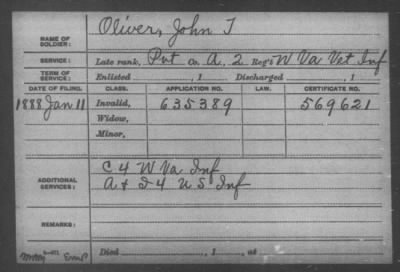 NAME OF SOLDIER: Oliver, John T
SERVICE: Late rank, Pvt Co. A, 2 Reg't W Va Vet Inf
TERM OF SERVICE: Enlisted , 1 Discharged , 1
DATE OF FILING. CLASS. APPLICATION NO. LAW. CERTIFICATE NO.
1888 Jan 11 Invalid, 635389 569621
Widow,
Minor,
C 4 W Va Inf
ADDITIONAL SERVICES: A & D 4 U S Inf
REMARKS:
Died , 1 , at